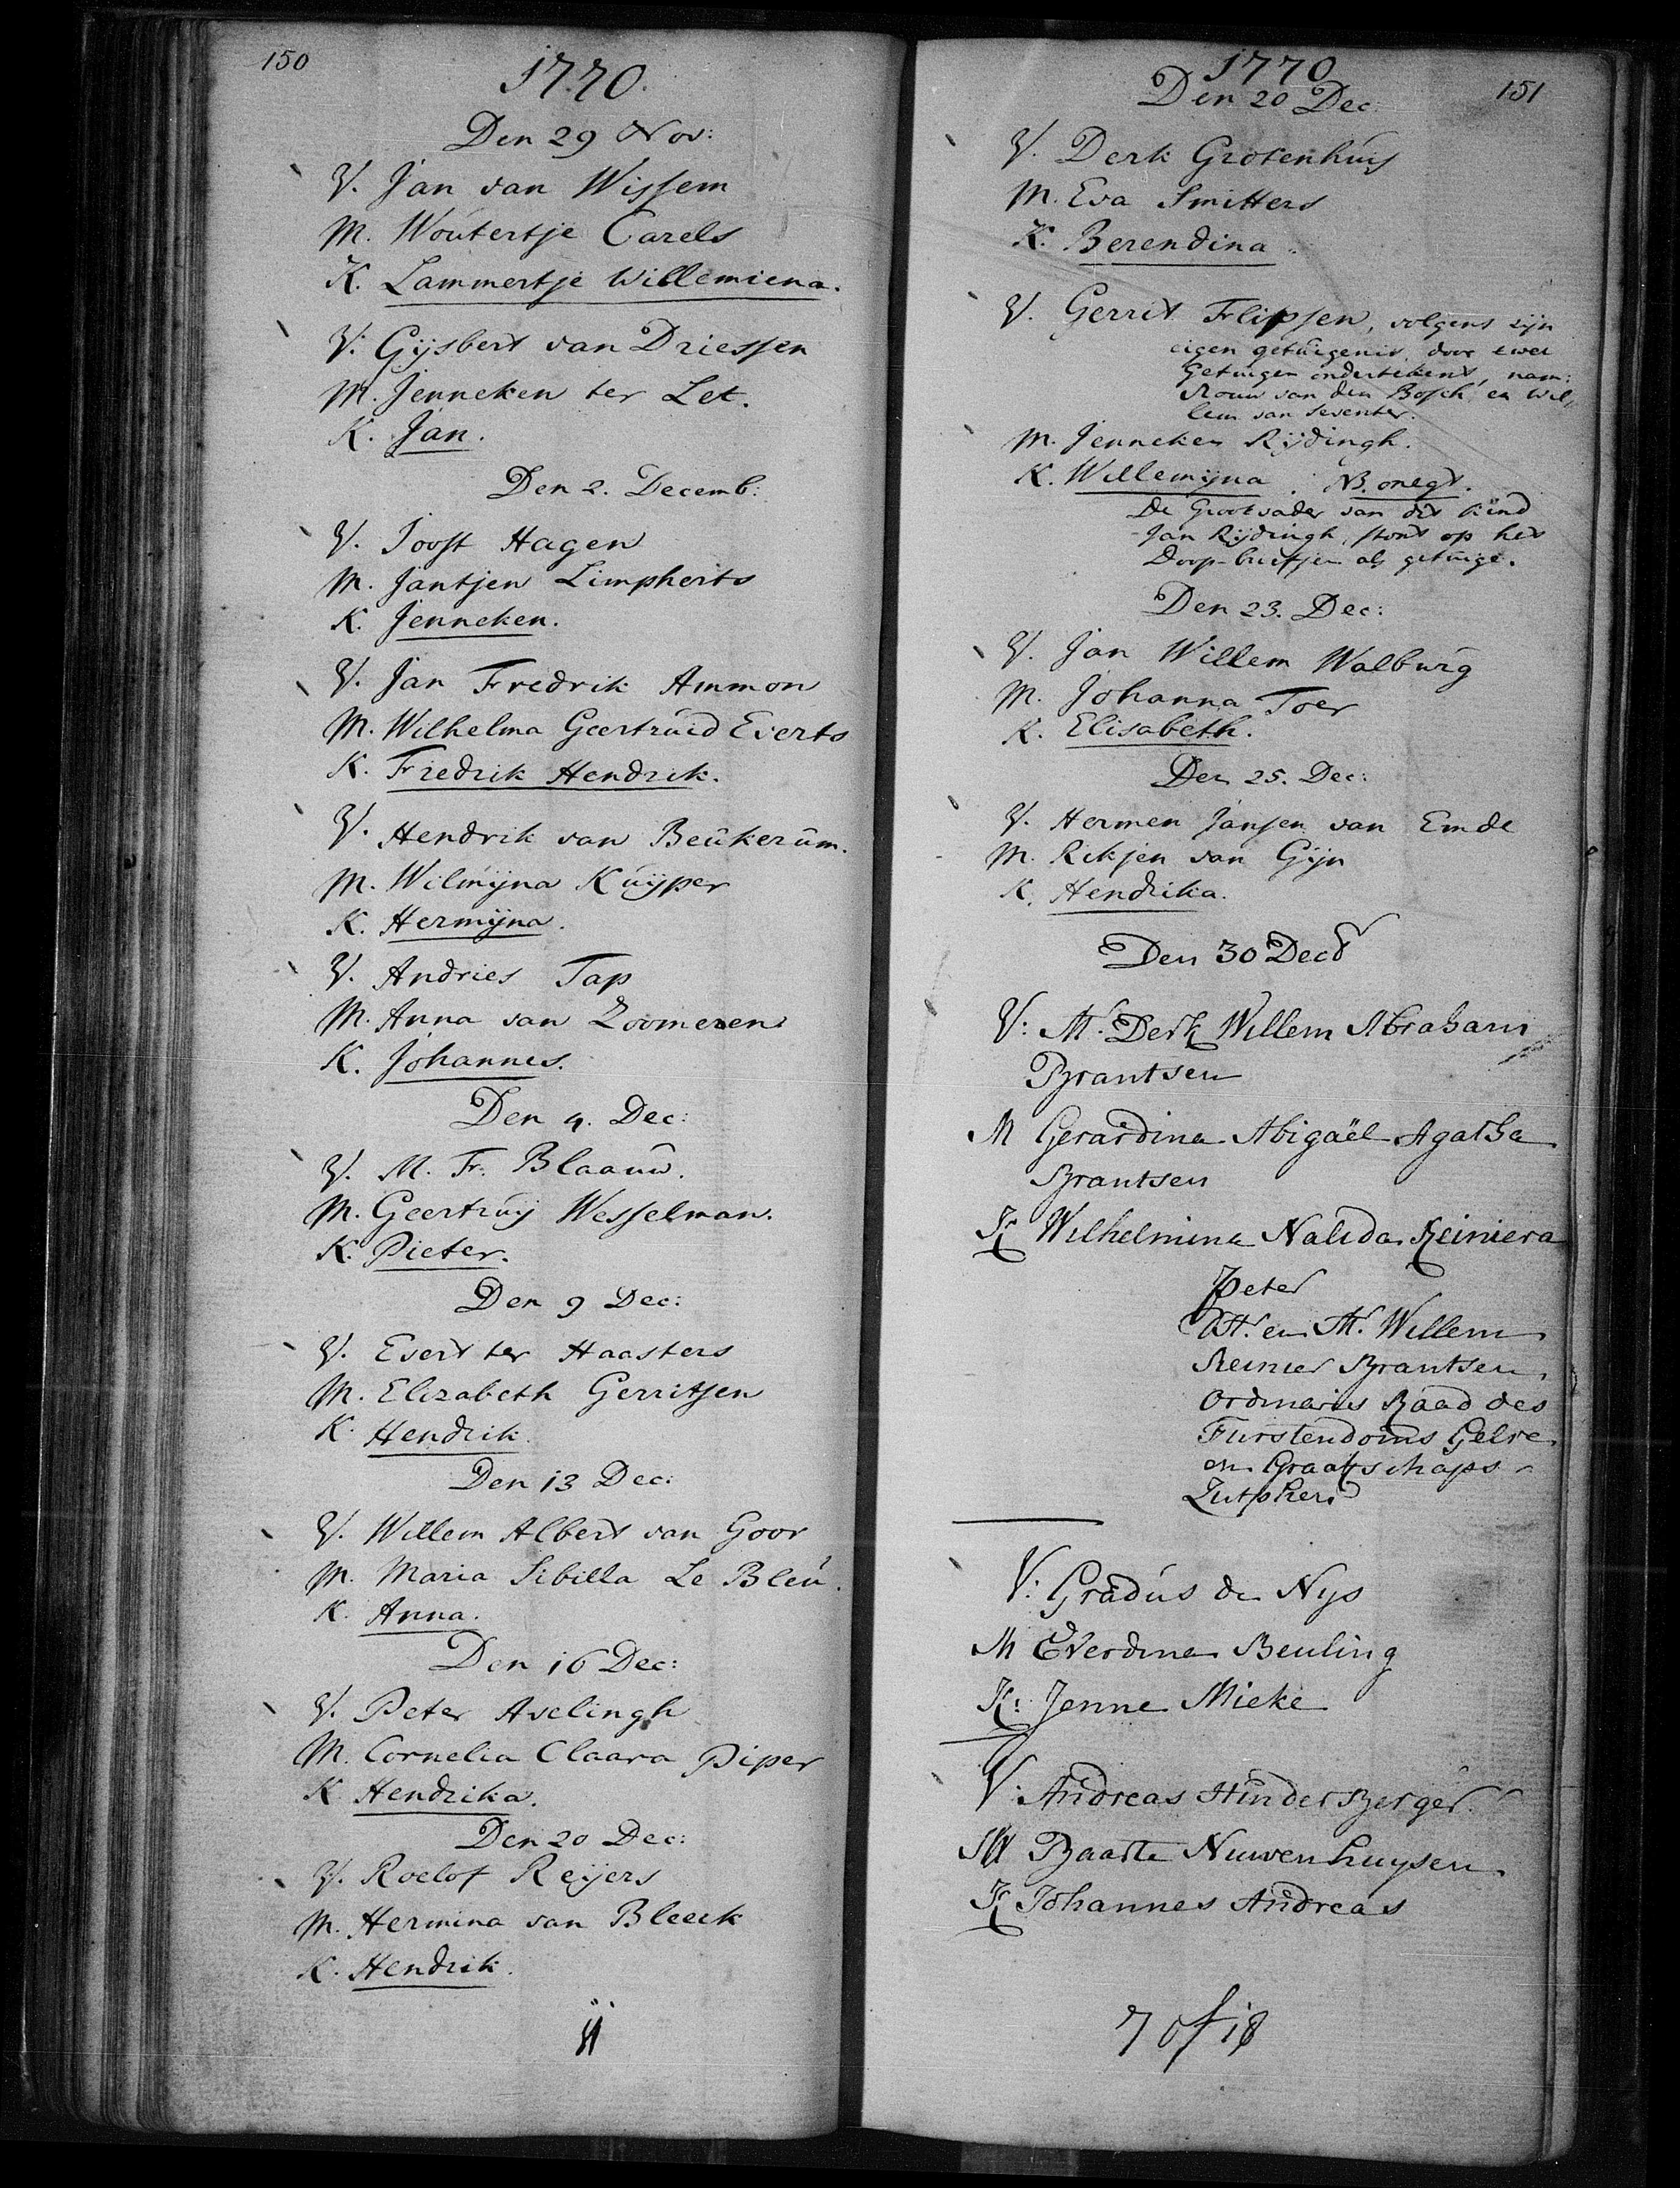 150
1770.
Den 29 Nov:
V. Jan van Wissem
M. Woutertje Carels
K. Lammertje Willemiena.
V. Gijsbert van Driessen
M. Jenneken ter Let.
K. Jan.
Den 2. Decemb:
V. Joost Hagen
M. Jantjen Limpherts
K. Jenneken.
V. Jan Fredrik Ammon
M. Wilhelma Geertruid Everts
K. Fredrik Hendrik.
V. Hendrik van Beukerum.
M. Wilmijna Kuijper
K. Hermijna.
V. Andries Tap
M. Anna van Zoomeren
K. Johannes.
Den 4. Dec:
V. M. Fr. Blaauw.
M. Geertruij Wesselman.
K. Pieter.
Den 9 Dec:
V. Evert ter Haasters
M. Elizabeth Gerritsen
K. Hendrik
Den 13 Dec:
V. Willem Albert van Goor
M. Maria Sibilla Le Bleu.
K. Anna.
Den 16 Dec:
V. Peter Avelingh
M. Cornelia Claara Piper
K Hendrika.
Den 20 Dec:
V. Roelof Reijers
M. Hermina van Bleeck
K. Hendrik.
1770
151
Den 20 Dec:
V. Derk Grotenhuis
M. Eva Smitters
K. Berendina.
V. Gerrit Flipsen, volgens zijn
eigen getuigenis, door twee
Getuigen ondertekent, nam:
Rouw van den Bosch, en Wil„
lem van Deventer.
M. Jenneken Rijdingh.
K. Willemijna. NB. onegt.
De Grootvader van dit kind
Jan Rijdingh, stont op het
Doop-briefjen als getuige.
Den 23. Dec:
V. Jan Willem Walburg
M. Johanna Toer
K. Elisabeth.
Den 25. Dec:
V. Hermen Jansen van Emde
M. Rikjen van Gijn
K. Hendrika.
Den 30 Decr
V: Mr. Derk Willem Abraham
Brantsen
M Gerardina Abigaël Agatha
Brantsen
K Wilhelmina Nalida Reiniera
Peter
Hr. en Mr. Willem
Reinier Brantsen,
Ordinaris Raad des
Furstendoms Gelre
en Graafschaps
Zutphen
V: Gradus de Nijs
M Everdina Beuling
K: Jenne Mieke
V: Andreas Hinderberger
M Baarte Nuwenhuysen
K Johannes Andreas